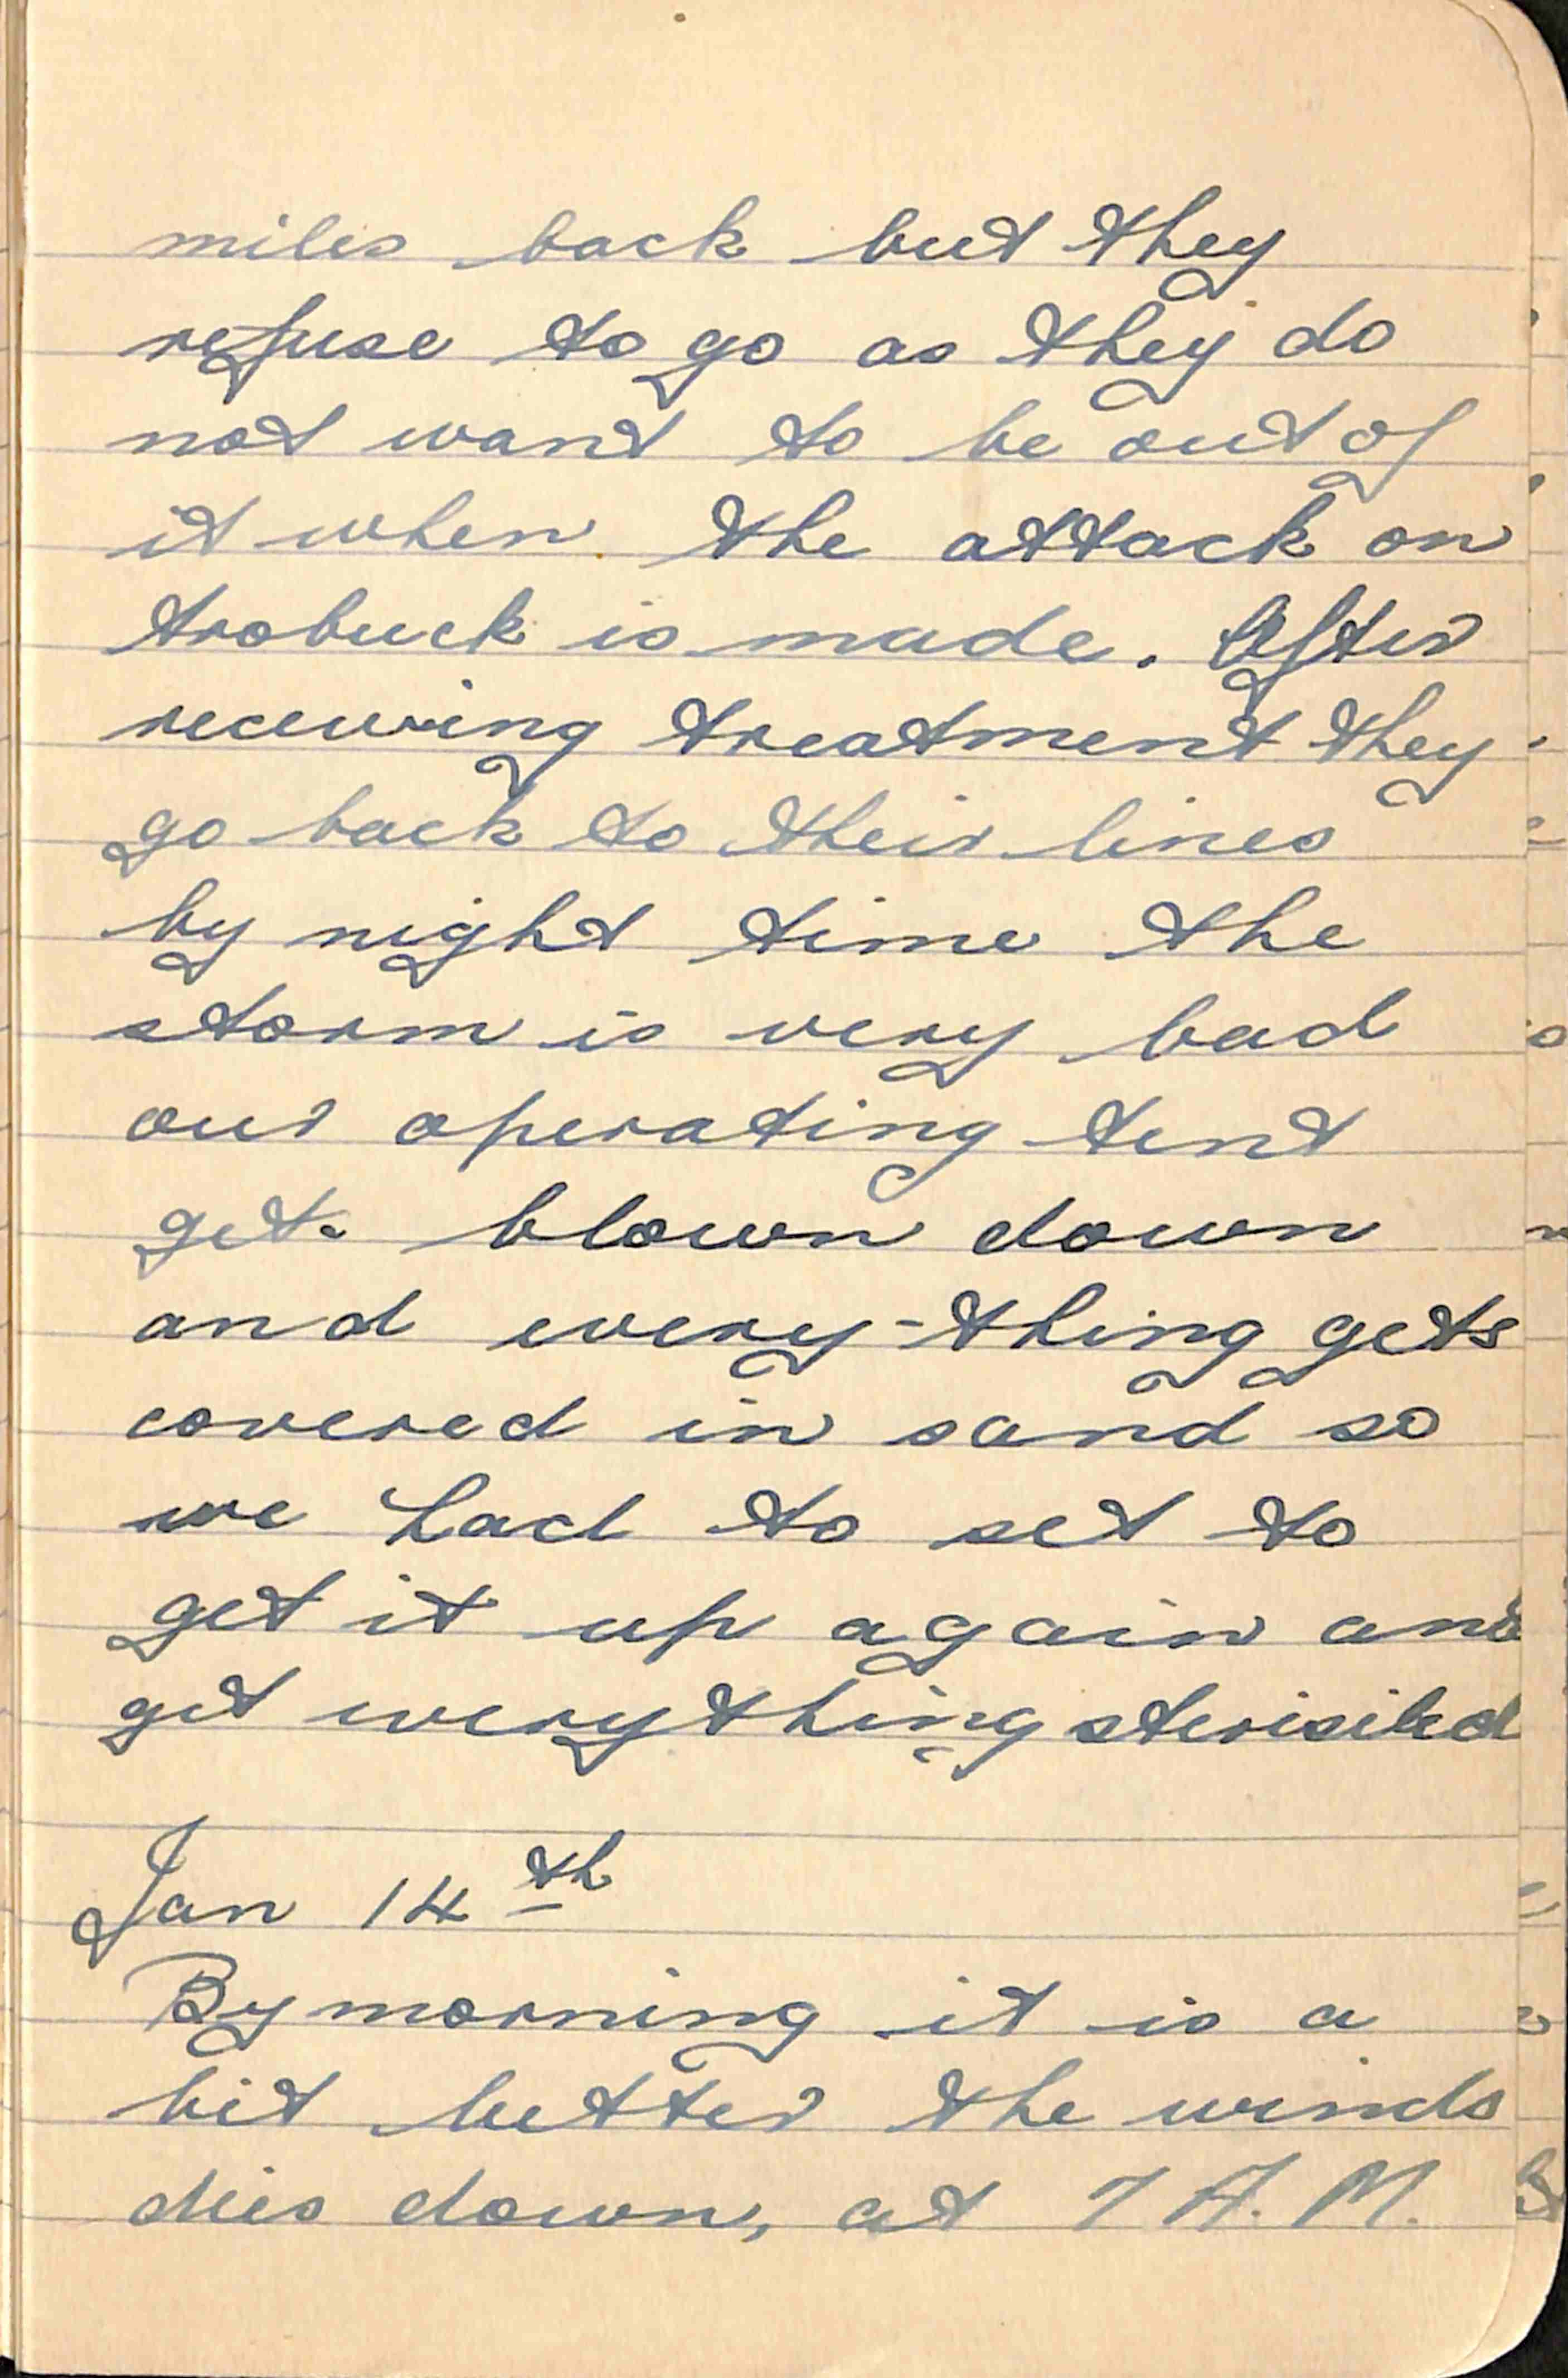 miles back but they
refuse to go as they do
not want to be out of
it when the attack on
trobuck is made. After
receiving treatment they
go back to their lines
by night time the
storm is very bad
our operating tent
gets blown down
and every-thing gets
covered in sand so
we had to set to
get it up again and
get everything sterisiled
Jan 14th
By morning it is a
bit better the winds
dies down, at 7 A.M.